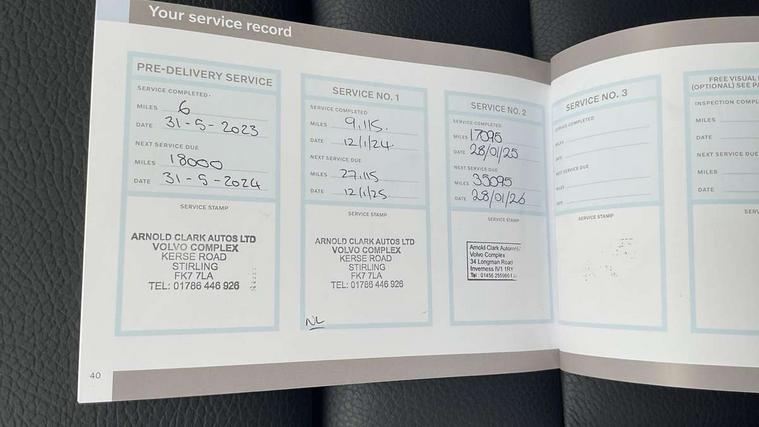 Your service record
PRE-DELIVERY SERVICE
SERVICE COMPLETED
MILES 6
DATE 31-5-2023
NEXT SERVICE DUE
MILES 18000
DATE 31-5-2024
SERVICE STAMP
ARNOLD CLARK AUTOS LTD
VOLVO COMPLEX
KERSE ROAD
STIRLING
FK7 7LA
TEL: 01786 446 926
SERVICE NO. 1
SERVICE COMPLETED
MILES 9,115.
DATE 12/1/24.
NEXT SERVICE DUE
MILES 27,115
DATE 12/1/25.
SERVICE STAMP
ARNOLD CLARK AUTOS LTD
VOLVO COMPLEX
KERSE ROAD
STIRLING
FK7 7LA
TEL: 01786 446 926
NL
SERVICE NO. 2
SERVICE COMPLETED
MILES 17095
DATE 28/01/25
NEXT SERVICE DUE
MILES 35095
DATE 28/01/26
SERVICE STAMP
Arnold Clark
Volvo Complex
34 Longman Road
Inverness IV1 1RY
Tel:
SERVICE NO. 3
SERVICE COMPLETED
MILES
DATE
NEXT SERVICE DUE
MILES
DATE
SERVICE STAMP
FREE VISUAL
(OPTIONAL) SEE
INSPECTION
MILES
DATE
NEXT SERVICE DUE
MILES
DATE
40